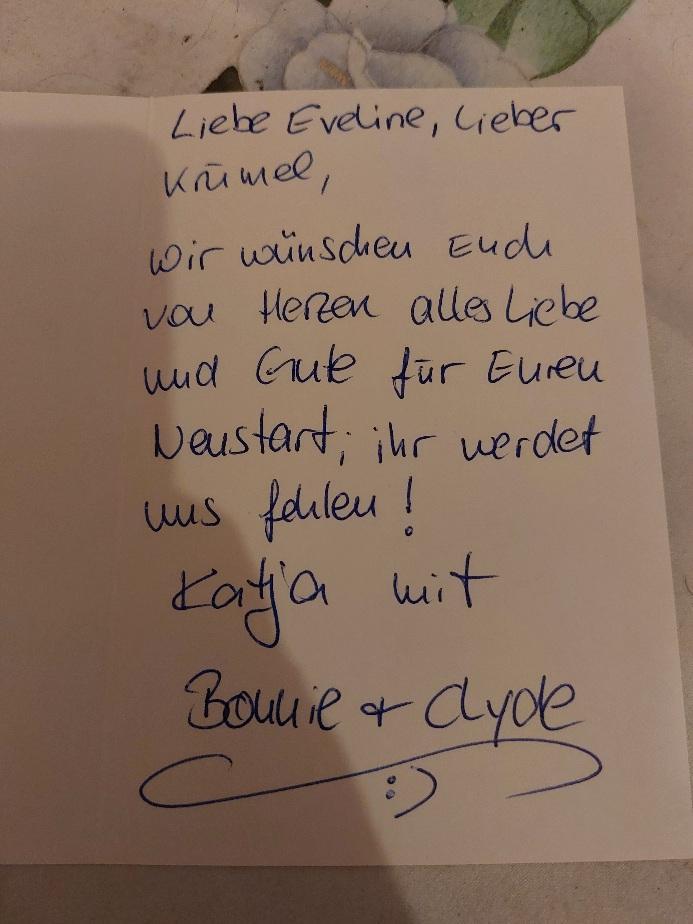 Liebe Eveline, lieber
Krümel,
wir wünschen Euch
von Herzen alles Liebe
und Gute für Euren
Neustart; ihr werdet
uns fehlen!
Katja mit
Bonnie + Clyde
:)